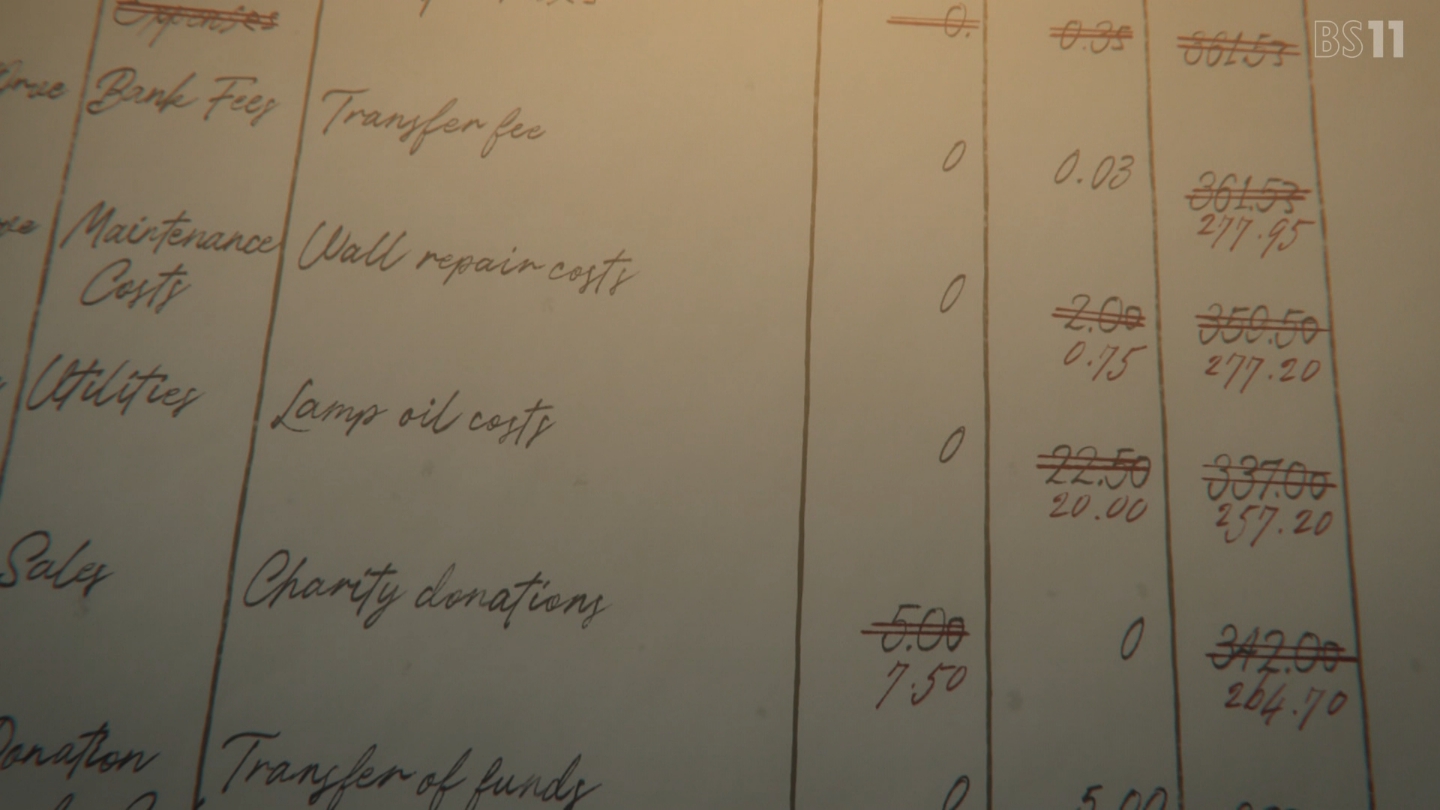 Expenses 0. 0.35 861.53
BS11
Bank Fees Transfer fee 0 0.03 361.53
277.95
Maintenance Wall repair costs 0 2.00 350.50
Costs 0.75 277.20
Utilities Lamp oil costs 0 22.50 337.00
20.00 257.20
Sales Charity donations 5.00 0 342.00
7.50 264.70
Donation Transfer of funds 0 5.00